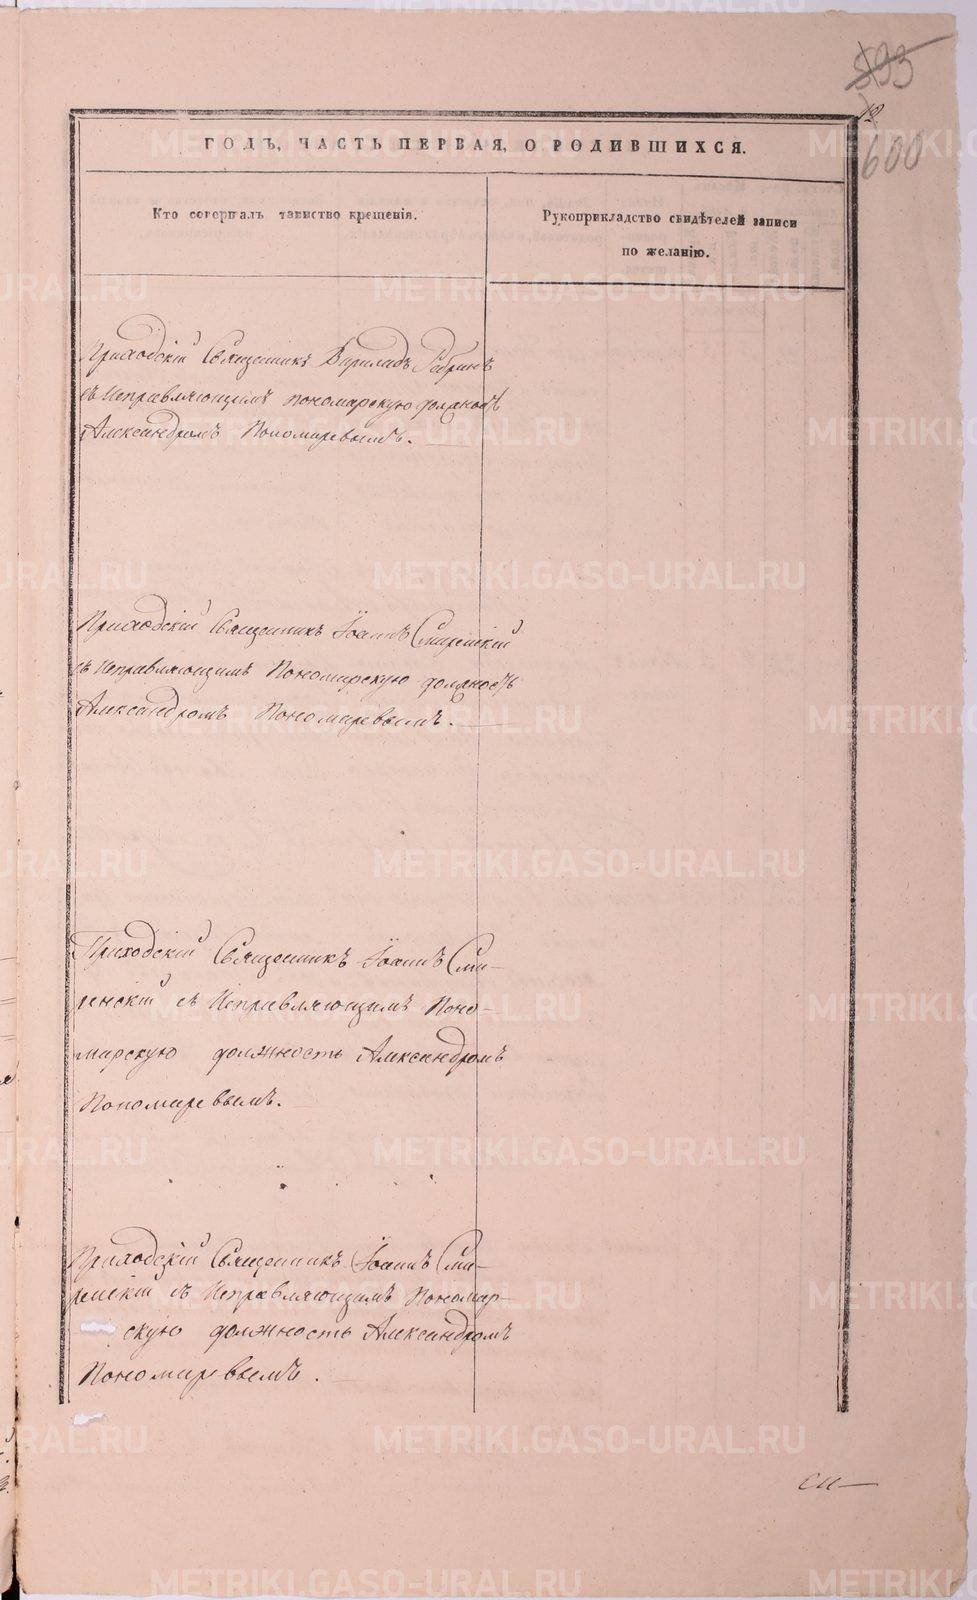 593
12
600
ГОДЪ, ЧАСТЬ ПЕРВАЯ, О РОДИВШИХСЯ.
Кто совершалъ таинство крещенія.
Рукоприкладство свидѣтелей записи
по желанію.
Приходскій Священникъ Вириладъ Ребринъ
съ Исправляющимъ пономарскую должность
Александромъ Пономаревымъ.
Приходскій Священникъ Іоаннъ Смиренскій
съ Исправляющимъ Пономарскую должность
Александромъ Пономаревымъ.
Приходскій Священникъ Іоаннъ Сми-
ренскій съ Исправляющимъ Поно-
марскую должность Александромъ
Пономаревымъ.
Приходскій Священникъ Іоаннъ Сми-
ренскій съ Исправляющимъ Пономар-
скую должность Александромъ
Пономаревымъ.
METRIKI.GASO-URAL.RU